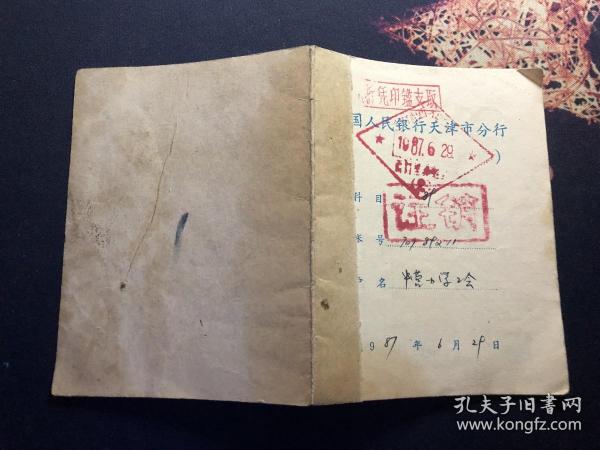 凭印鑑支取
国人民银行天津市分行
1987.6.29
)
科目
注销
帐号 701-892-11
名 中营小学工会
987年6月29日
孔夫子旧书网
www.kongfz.com